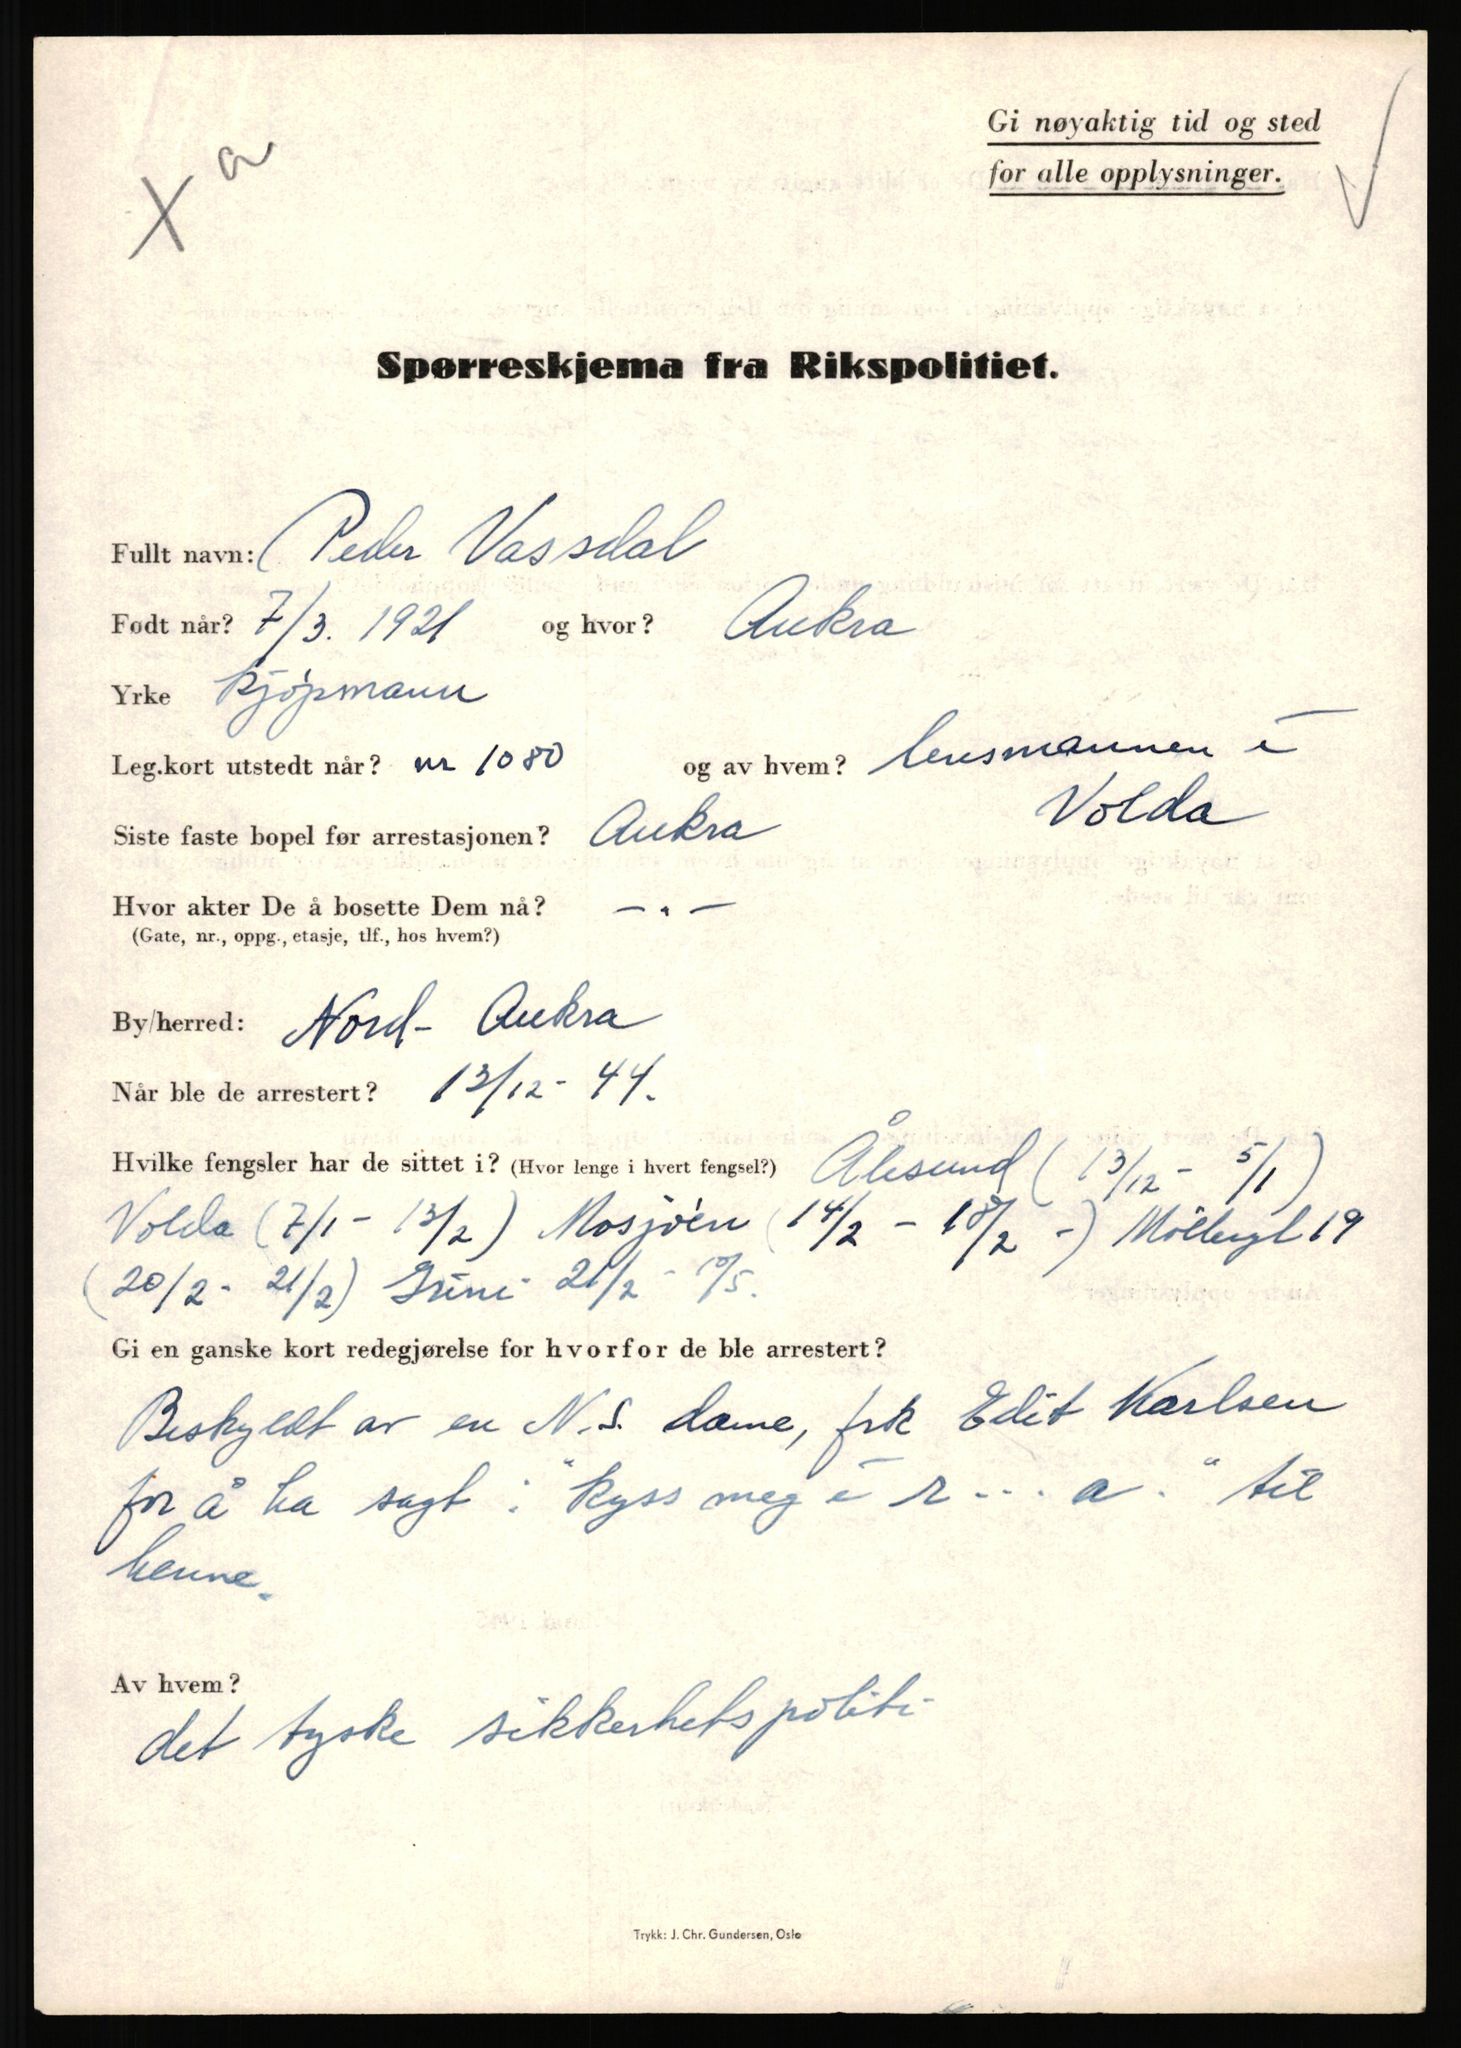 X a
Gi nøyaktig tid og sted
for alle opplysninger.
Spørreskjema fra Rikspolitiet.
Fullt navn: Peder Vassdal
Født når? 7/3. 1921 og hvor? Aukra
Yrke kjöpmann
Leg.kort utstedt når? nr 1080 og av hvem? lensmannen i
Volda
Siste faste bopel før arrestasjonen? Aukra
Hvor akter De å bosette Dem nå? — „ —
(Gate, nr., oppg., etasje, tlf., hos hvem?)
By/herred: Nord- Aukra
Når ble de arrestert? 13/12 - 44.
Hvilke fengsler har de sittet i? (Hvor lenge i hvert fengsel?) Ålesund (13/12 - 5/1)
Volda (7/1 - 13/2) Mosjöen (14/2 - 18/2 -) 19
(20/2 - 21/2) Grini 21/2 - /5.
Gi en ganske kort redegjørelse for hvorfor de ble arrestert?
Beskyldt av en N.S. dame, frk Edit Karlsen
for å ha sagt : "kyss meg i r...a." til
henne.
Av hvem?
det tyske sikkerhetspoliti
Trykk: J. Chr. Gundersen, Oslo